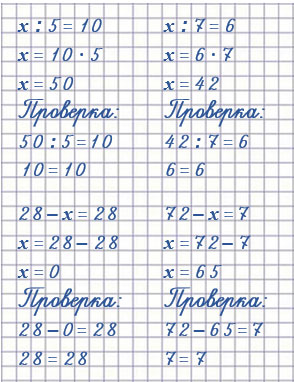 x : 5 = 10
x = 10 · 5
x = 50
Проверка:
50 : 5 = 10
10 = 10
x : 7 = 6
x = 6 · 7
x = 42
Проверка:
42 : 7 = 6
6 = 6
28 – x = 28
x = 28 – 28
x = 0
Проверка:
28 – 0 = 28
28 = 28
72 – x = 7
x = 72 – 7
x = 65
Проверка:
72 – 65 = 7
7 = 7